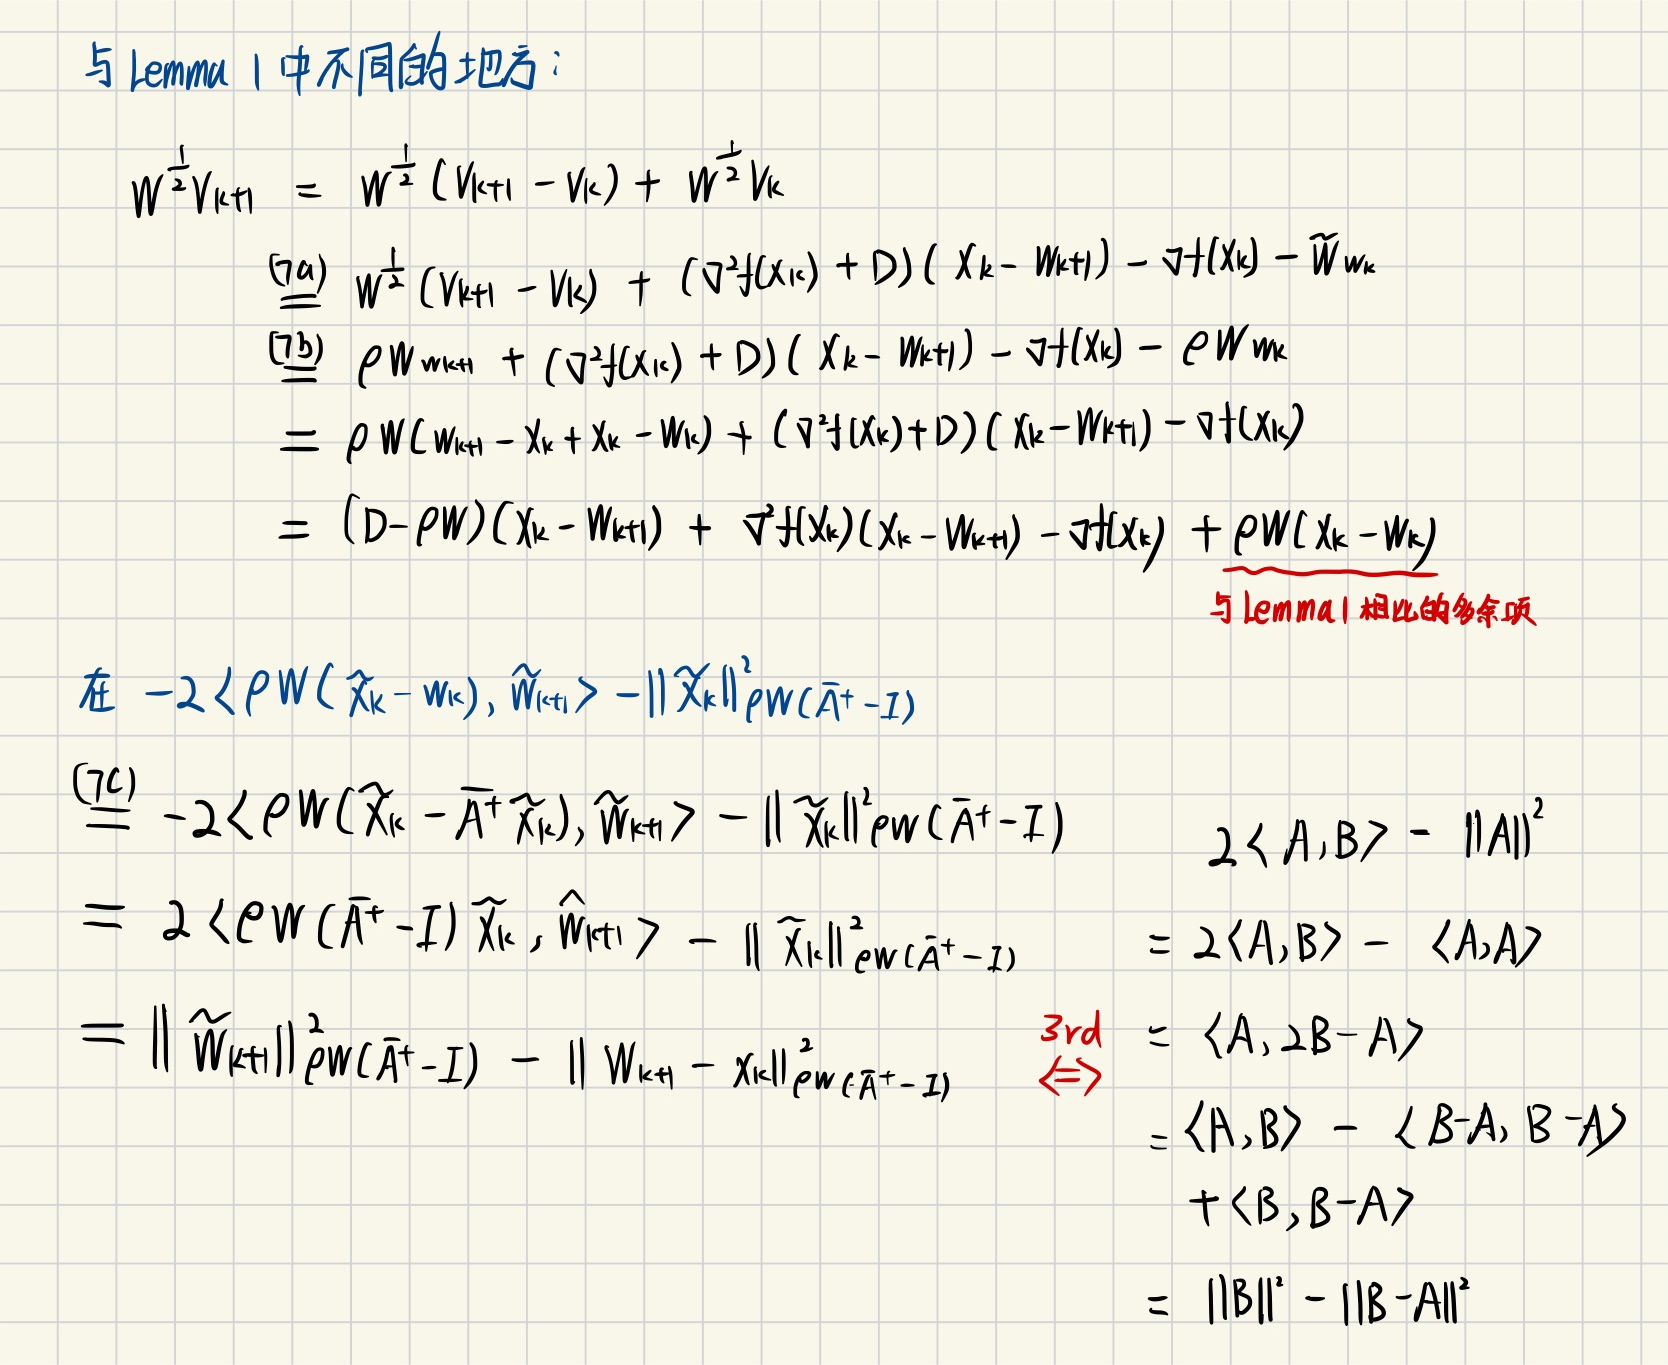 与 Lemma 1 中不同的地方：
W^{1/2} V_{k+1} = W^{1/2} (V_{k+1} - V_k) + W^{1/2} V_k
(7a) = W^{1/2} (V_{k+1} - V_k) + (∇²f(x_k) + D)(x_k - w_{k+1}) - ∇f(x_k) - W̃ w_k
(7b) = ρW w_{k+1} + (∇²f(x_k) + D)(x_k - w_{k+1}) - ∇f(x_k) - ρW w_k
= ρW(w_{k+1} - x_k + x_k - w_k) + (∇²f(x_k) + D)(x_k - w_{k+1}) - ∇f(x_k)
= (D - ρW)(x_k - w_{k+1}) + ∇²f(x_k)(x_k - w_{k+1}) - ∇f(x_k) + ρW(x_k - w_k)
与 Lemma 1 相比的多余项
在 -2⟨ρW(x̃_k - w_k), w̃_{k+1}⟩ - ||x̃_k||²_{ρW(Ā⁺ - I)}
(7c) = -2⟨ρW(x̃_k - Ā⁺ x̃_k), w̃_{k+1}⟩ - ||x̃_k||²_{ρW(Ā⁺ - I)}
= 2⟨ρW(Ā⁺ - I) x̃_k, ŵ_{k+1}⟩ - ||x̃_k||²_{ρW(Ā⁺ - I)}
= ||w̃_{k+1}||²_{ρW(Ā⁺ - I)} - ||w_{k+1} - x_k||²_{ρW(Ā⁺ - I)}
3rd
⟺
2⟨A, B⟩ - ||A||²
= 2⟨A, B⟩ - ⟨A, A⟩
= ⟨A, 2B - A⟩
= ⟨A, B⟩ - ⟨B - A, B - A⟩
+ ⟨B, B - A⟩
= ||B||² - ||B - A||²